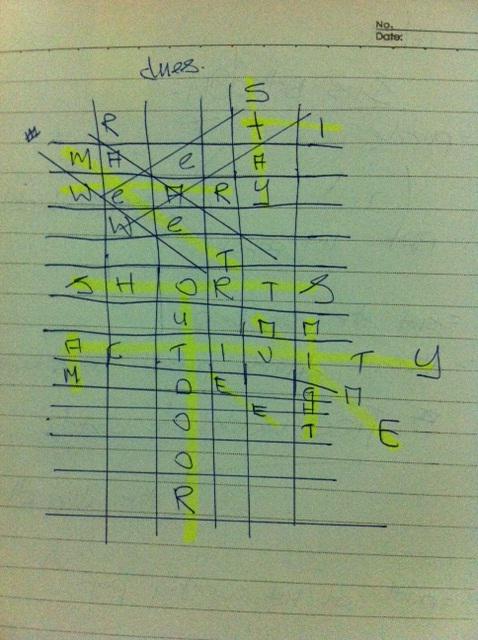 No.
Date:
dues.
S
R t I
# M A e A
W e A R Y
W e
T
S H O R T S
U n n
A C T I V I T Y
M D E G n
O E H E
T
O
O
R